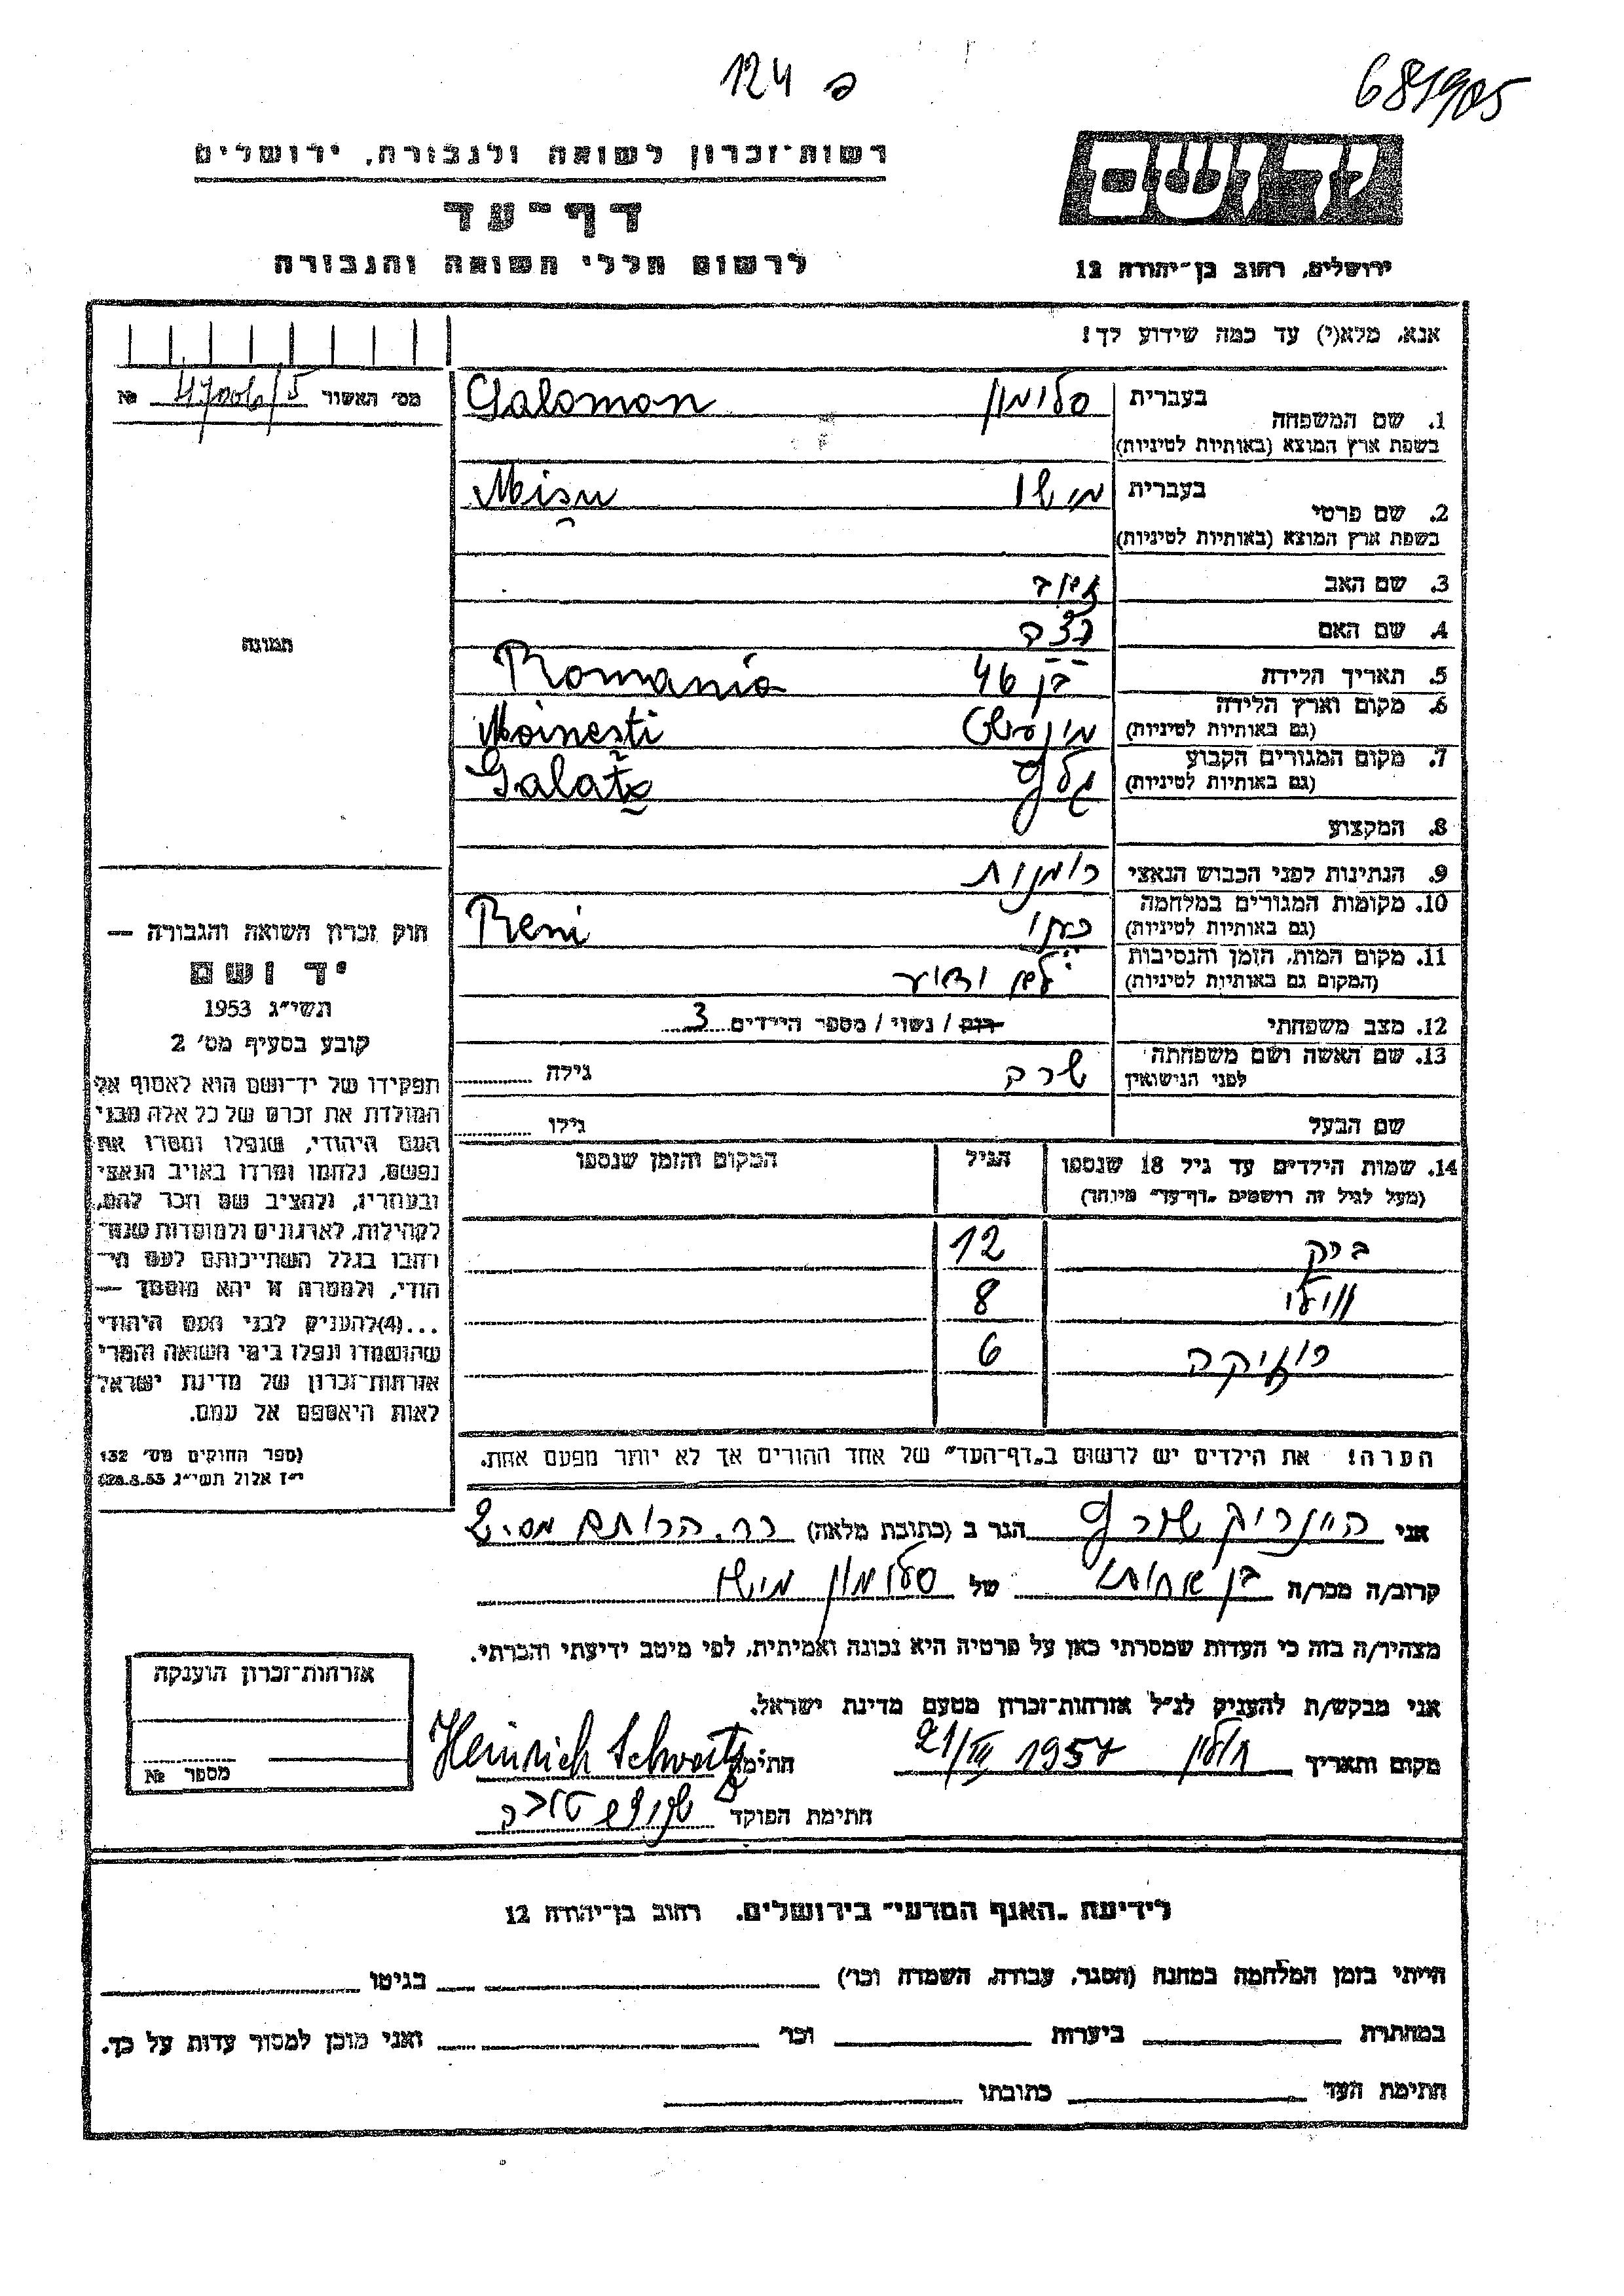 124 פ
681905
רשות-זכרון לשואה ולגבורה, ירושלים
ידושם
דף-עד
לרשום חללי השואה והגבורה
ירושלים, רחוב בן-יהודה 12
אנא, מלא(י) עד כמה שידוע לך!
מס' האשור № 47006/5
1. שם המשפחה בעברית סלומון
בשפת ארץ המוצא (באותיות לטיניות) Salomon
2. שם פרטי בעברית מישו
בשפת ארץ המוצא (באותיות לטיניות) Mișu
3. שם האב
4. שם האם
5. תאריך הלידה בן 46
6. מקום וארץ הלידה Romania
(גם באותיות לטיניות) Moinesti
7. מקום המגורים הקבוע גלץ
(גם באותיות לטיניות) Galatz
8. המקצוע
9. הנתינות לפני הכבוש הנאצי רומנית
10. מקומות המגורים במלחמה
(גם באותיות לטיניות) Reni
11. מקום המות, הזמן והנסיבות
(המקום גם באותיות לטיניות) לא ידוע
12. מצב משפחתי רוק / נשוי / מספר הילדים 3
13. שם האשה ושם משפחתה לפני הנישואין שרה גילה
שם הבעל גילו
14. שמות הילדים עד גיל 18 שנספו הגיל המקום והזמן שנספו
(מעל לגיל זה רושמים „דף-עד" מיוחד)
12
8
6
הערה! את הילדים יש לרשום ב„דף-העד" של אחד ההורים אך לא יותר מפעם אחת.
תמונה
חוק זכרון השואה והגבורה —
יד ושם
תשי״ג 1953
קובע בסעיף מס' 2
תפקידו של יד-ושם הוא לאסוף אל
המולדת את זכרם של כל אלה מבני
העם היהודי, שנפלו ומסרו את
נפשם, נלחמו ומרדו באויב הנאצי
ובעוזריו, ולהציב שם וזכר להם,
לקהילות, לארגונים ולמוסדות שנח־
רבו בגלל השתייכותם לעם הי־
הודי, ולמטרה זו יהא מוסמך —
...(4)להעניק לבני העם היהודי
שהושמדו ונפלו בימי השואה והמרי
אזרחות-זכרון של מדינת ישראל
לאות היאספם אל עמם.
(ספר החוקים מס' 132
י״ז אלול תשי״ג 28.8.53)
אני היינריק שורץ הגר ב (כתובת מלאה)
קרוב/ה מכר/ה של סלומון מישו
מצהיר/ה בזה כי העדות שמסרתי כאן על פרטיה היא נכונה ואמיתית, לפי מיטב ידיעתי והכרתי.
אני מבקש/ת להעניק לנ״ל אזרחות-זכרון מטעם מדינת ישראל.
מקום ותאריך חולון 1957 חתימה Heinrich Schwartz
חתימת הפוקד
אזרחות-זכרון הוענקה
מספר №
לידיעת „האגף המדעי" בירושלים. רחוב בן-יהודה 12
הייתי בזמן המלחמה במחנה (הסגר, עבודה, השמדה וכו') בגיטו
במחתרת ביערות וכו' ואני מוכן למסור עדות על כך.
חתימת העד כתובתו